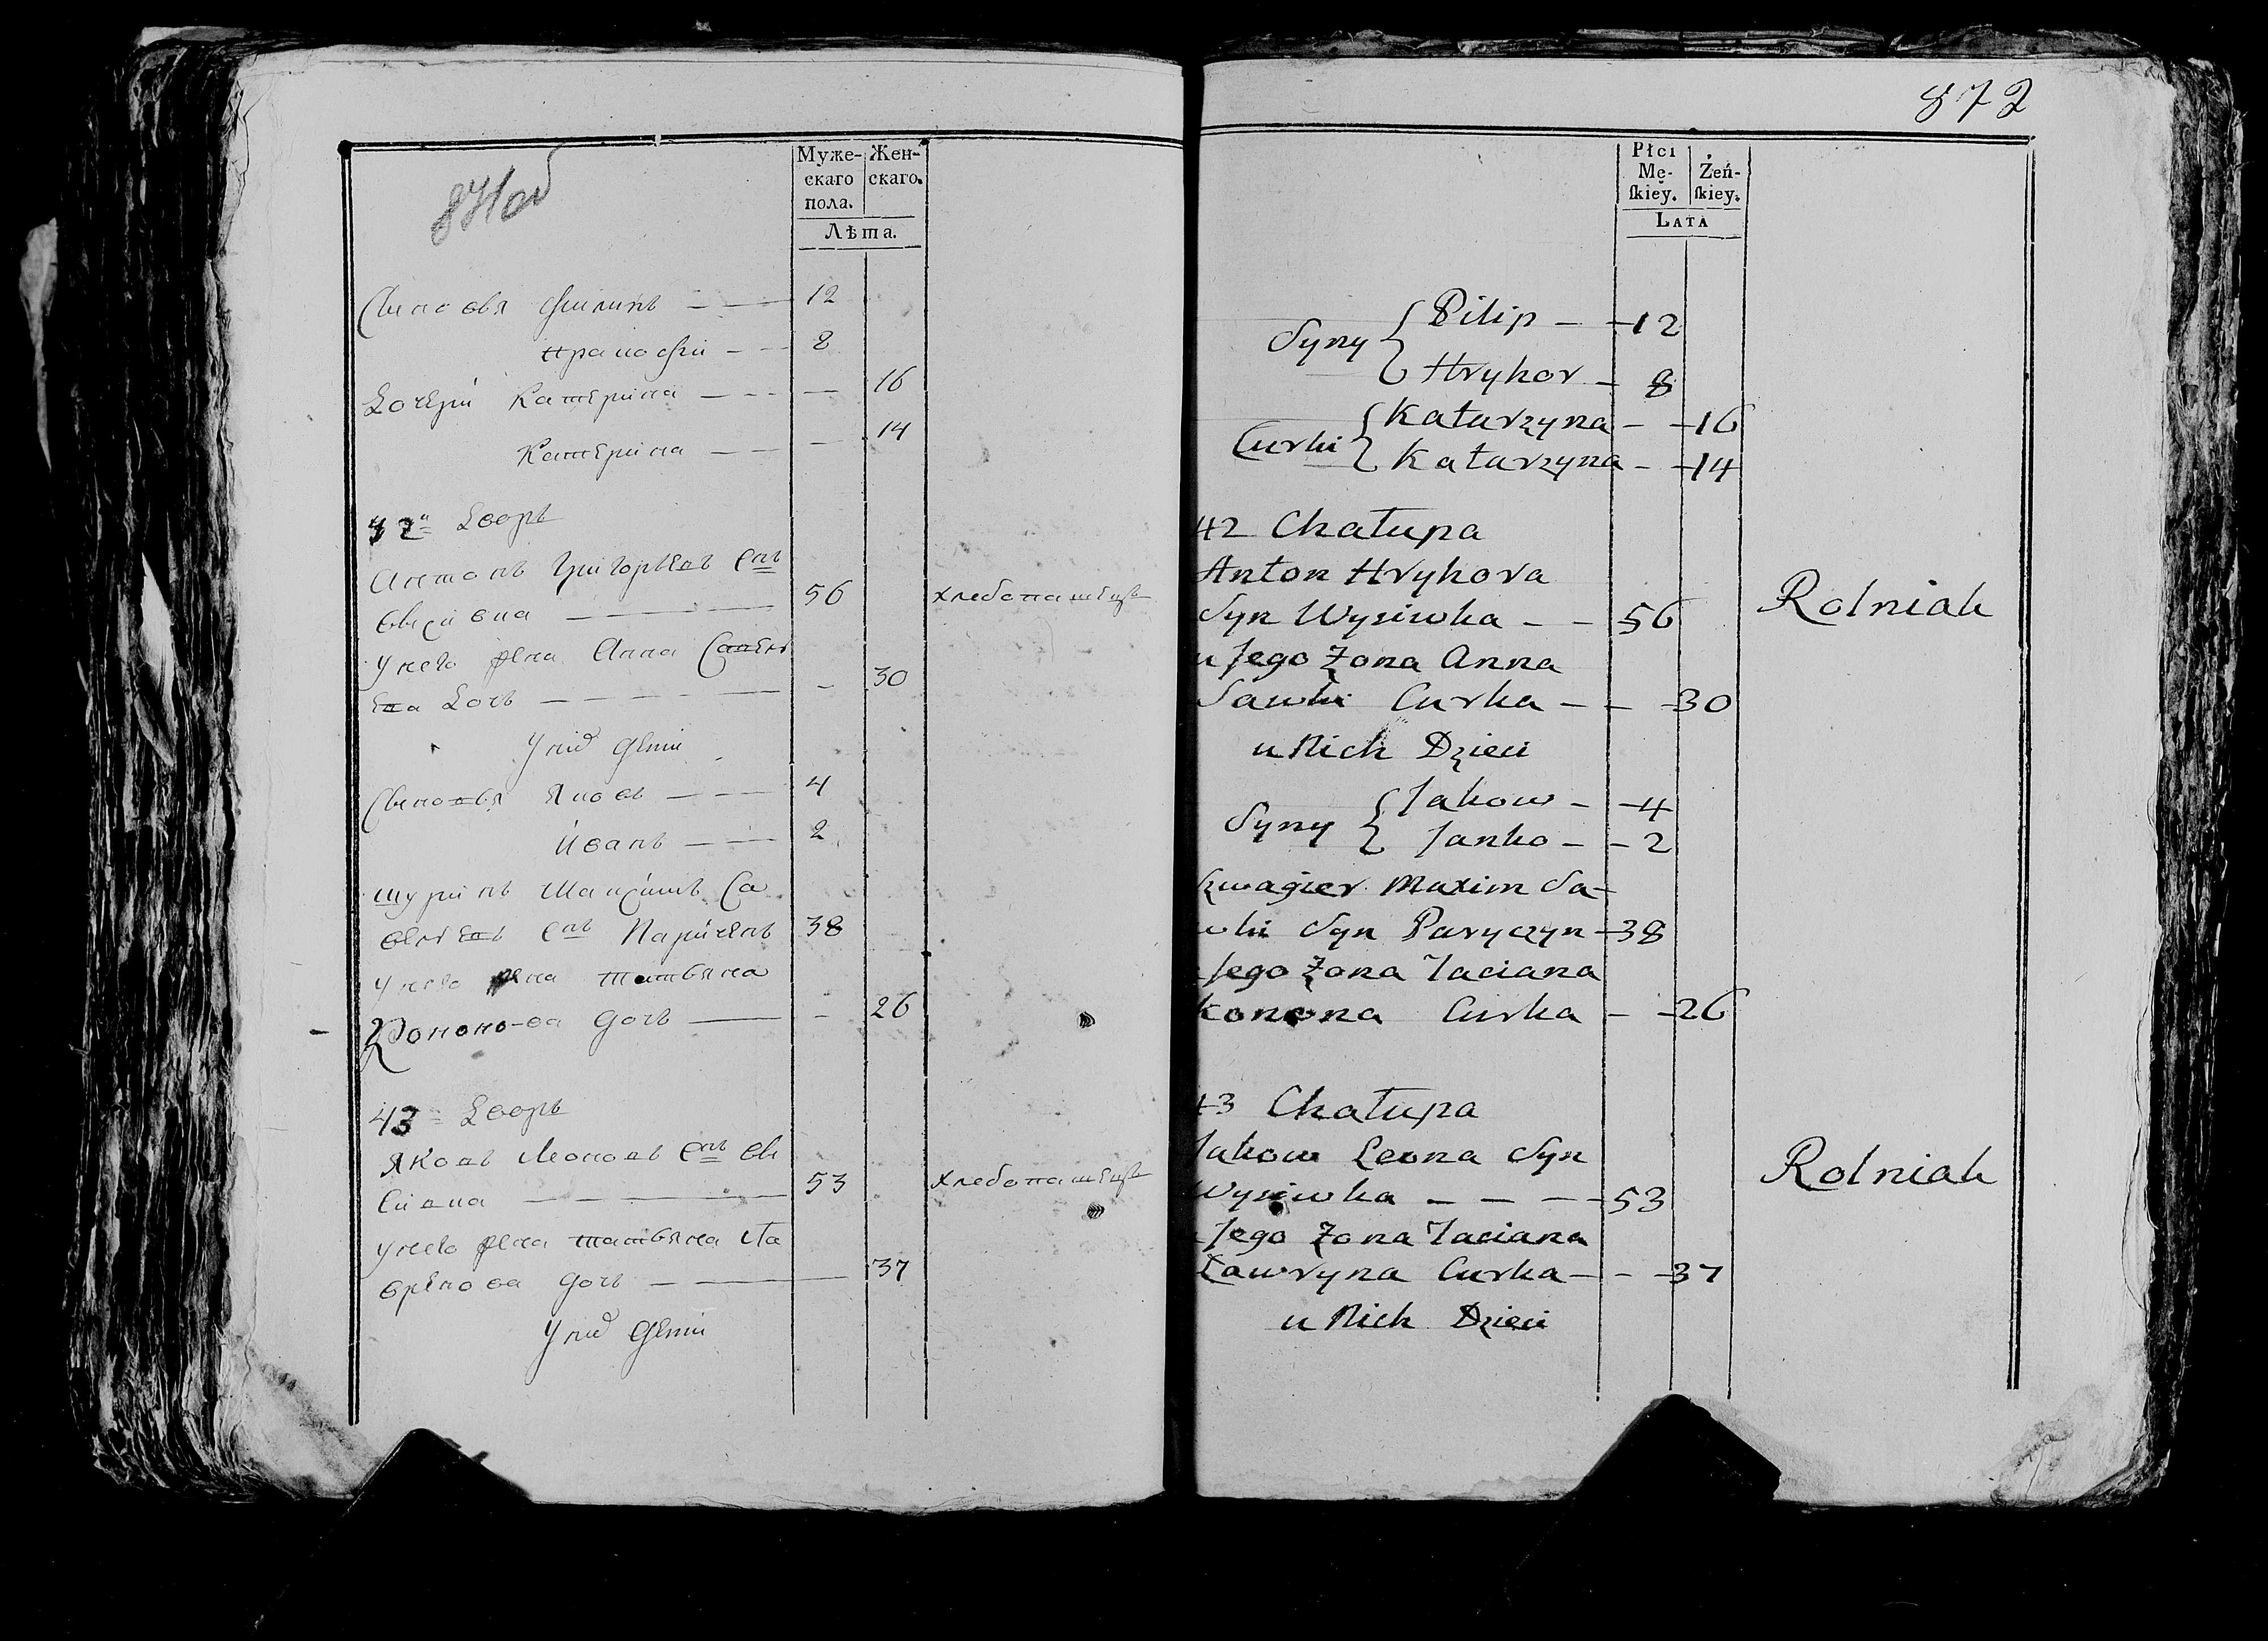 871 об
Муже- Жен-
скаго скаго.
пола.
Лѣта.
Сыновья Филипъ — — 12
8
Дочери Катерина — — — 16
Катерина — — — 14
42й Дворъ
Антонъ Григорьевъ снъ
— 56 хлебопашецъ
у него жена Анна
дочь — — — 30
у них дети
Сыновья Яковъ — — 4
Иванъ — — 2
шуринъ Максимъ Са
снъ Париченъ 38
у него жена татьяна
Кононова дочь — - 26
43 Дворъ
Яковъ Леоновъ снъ Вы
сивка — — — 53 хлебопашецъ
у него жена татьяна Ла
вренова дочь — — 37
у них дети
872
Płci
Mę- Żeń-
ſkiey. ſkiey.
Lata
Syny { Pilip — 12
Hrykor — 8
Curki { Katarzyna — 16
Katarzyna — 14
42 Chałupa
Anton Hrykora
Syn Wysiwka — — 56 Rolniak
u Jego Żona Anna
Sawki Curka — — 30
u Nich Dzieci
Syny { Jakow — 4
Janko — 2
Szwagier Maxim Sa-
wki Syn Paryczyn — 38
Jego Żona Taciana
Konona Curka — 26
43 Chałupa
Jakow Leona Syn
Wysiwka — — — 53 Rolniak
Jego Żona Taciana
Ławryna Curka — — 37
u Nich Dzieci